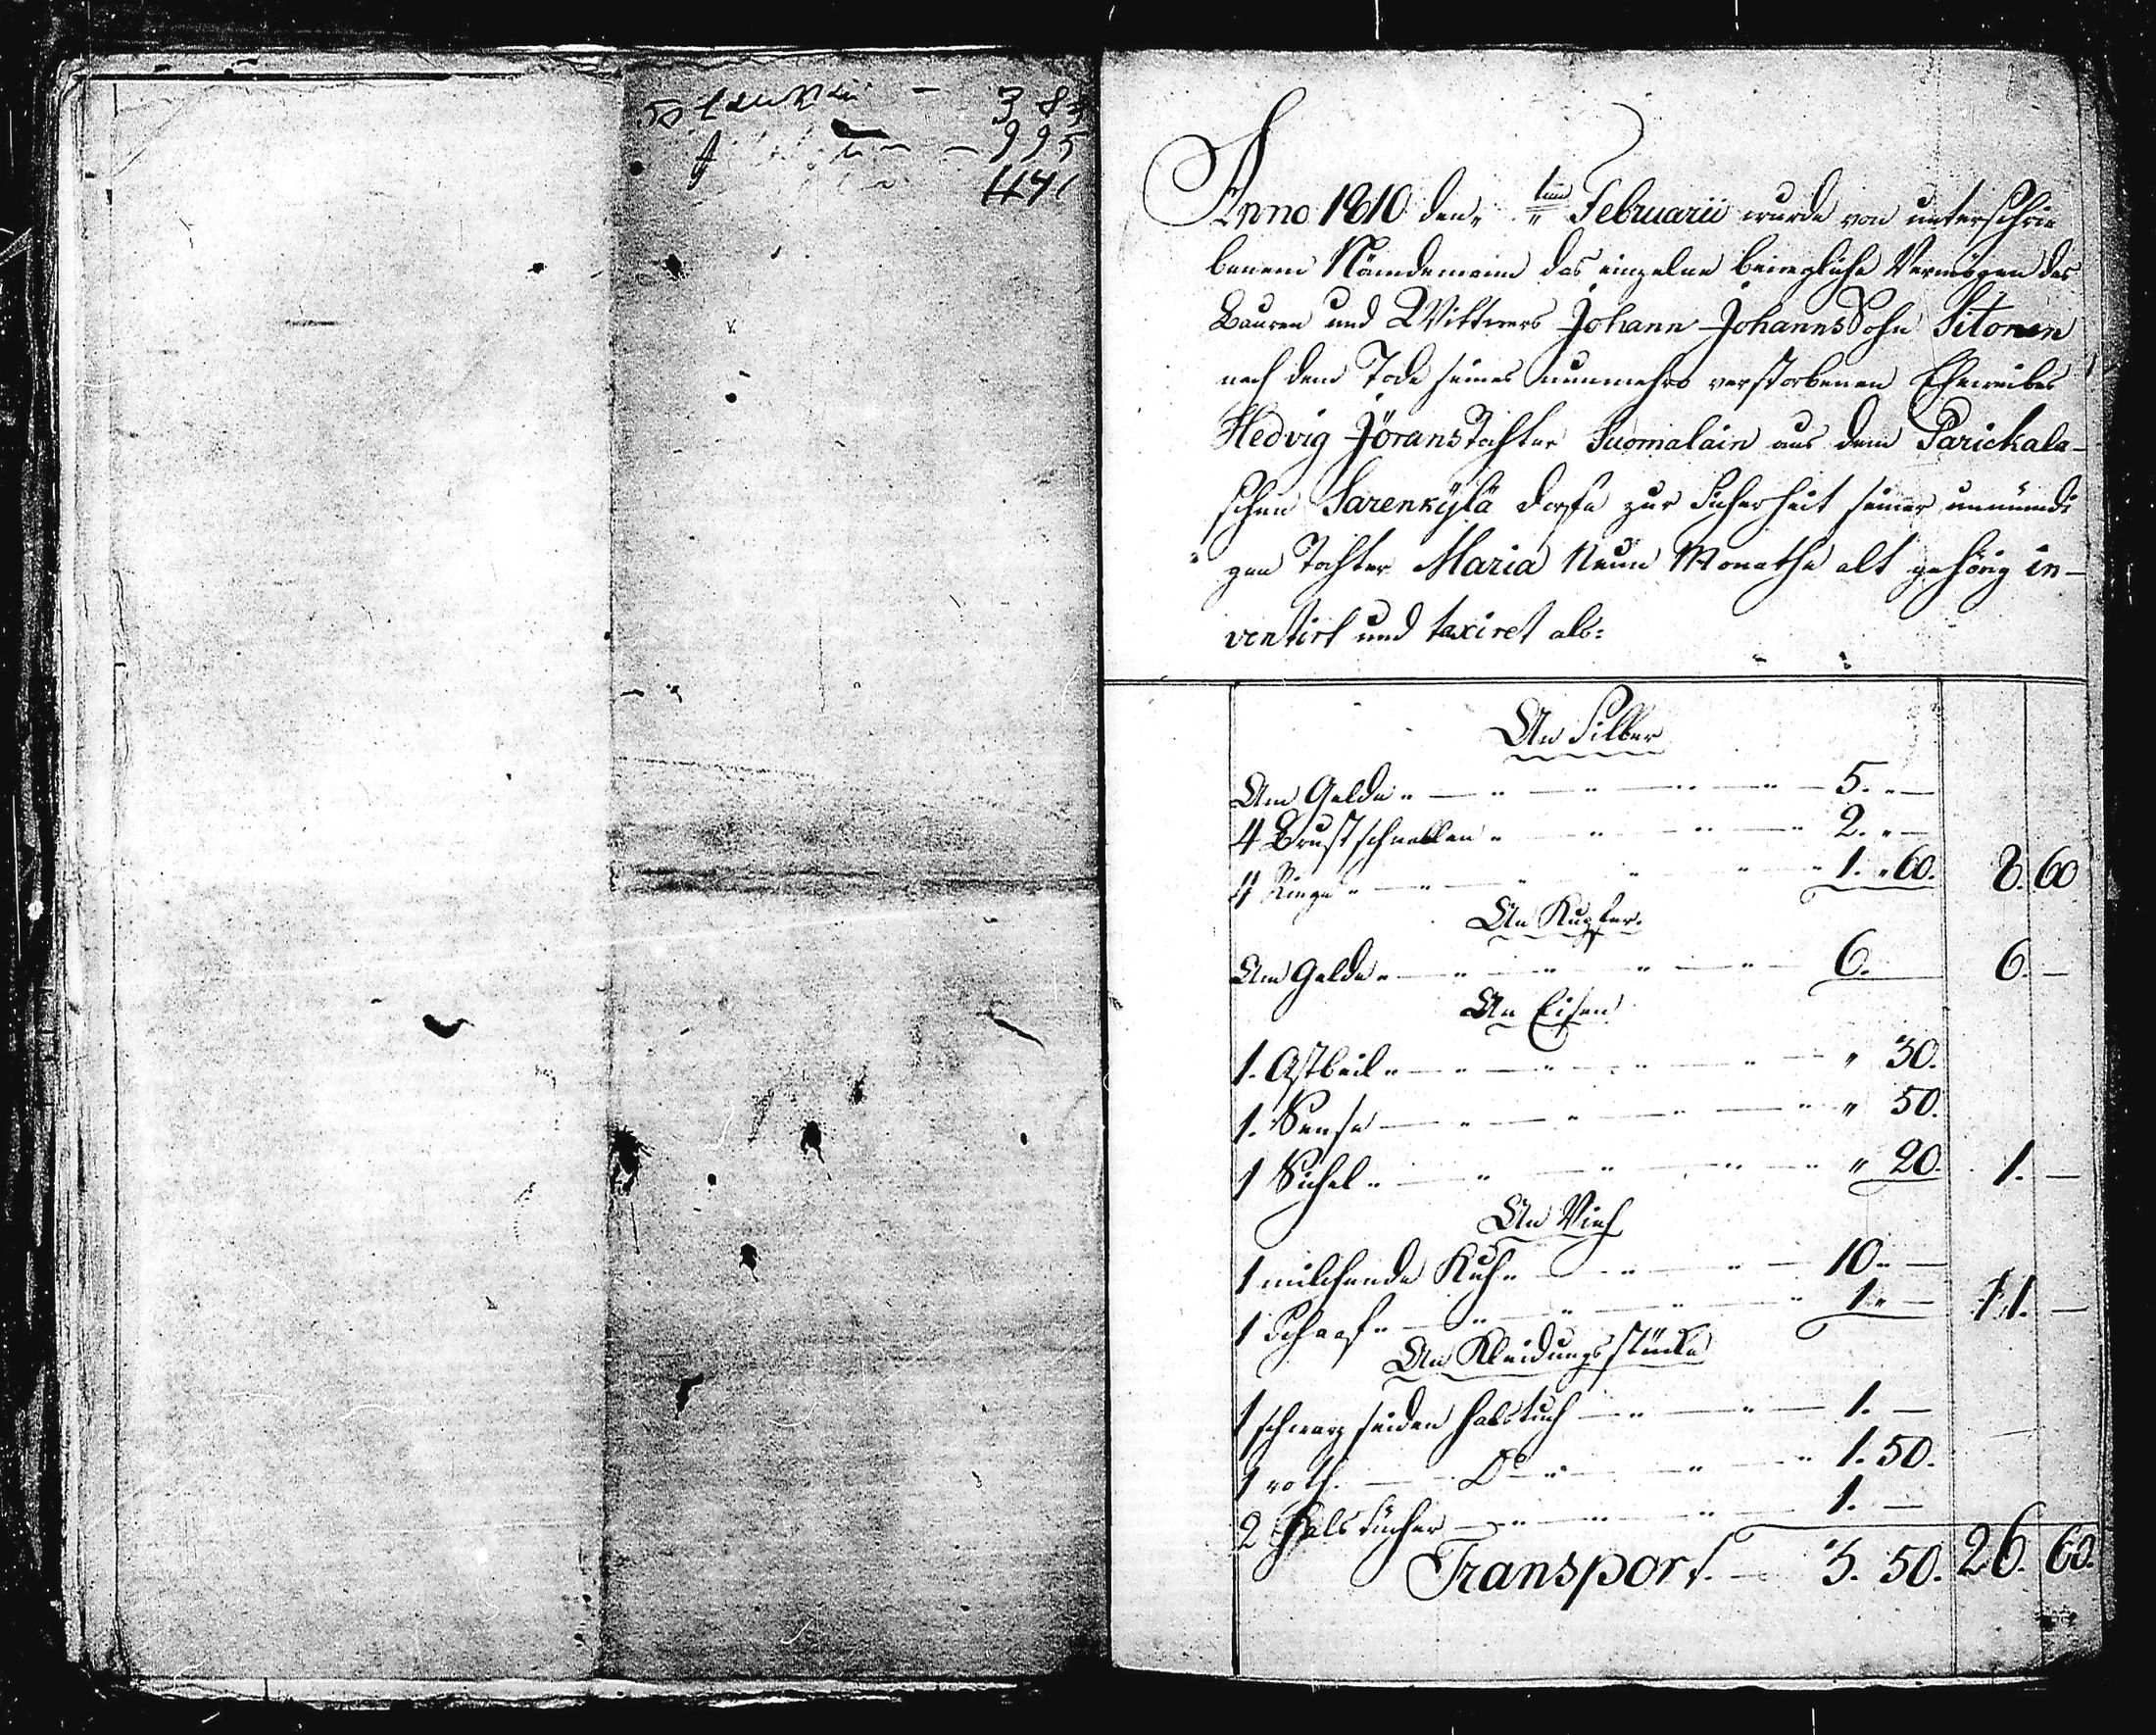 3 83
995
1141
Anno 1810 den 1ten Februarii wurde von unterschrie
benem Nämdemann das einzelne bewegliche Vermögen des
Bauren und Wittwers Johann Johanns Sohn Sitonen
nach dem Tode seines nunmehro verstorbenen Eheweibes
Hedvig Jörans Tochter Suomalain aus dem Parickala-
schen Sarenkylä Dorfe zur Sicherheit seiner unmündi
gen Tochter Maria Neun Monathe alt gehörig in-
ventirt und taxiret als:
An Silber
Am Gelde 5. —
4 Brustschnallen 2. —
4 Ringe 1. 60. 8. 60
An Kupfer.
Am Gelde 6. — 6. —
An Eisen
1. Astbeil 30.
1. Sense 50.
1 Sichel 20. 1. —
An Vieh
1 milchende Kuh 10. —
1 Schaaf 1. — 11. —
An Kleidungsstücke
1 schwarz seiden Halstuch 1. —
1 roth. Do 1. 50.
2 Halstücher 1. —
Transport. 3. 50. 26. 60.